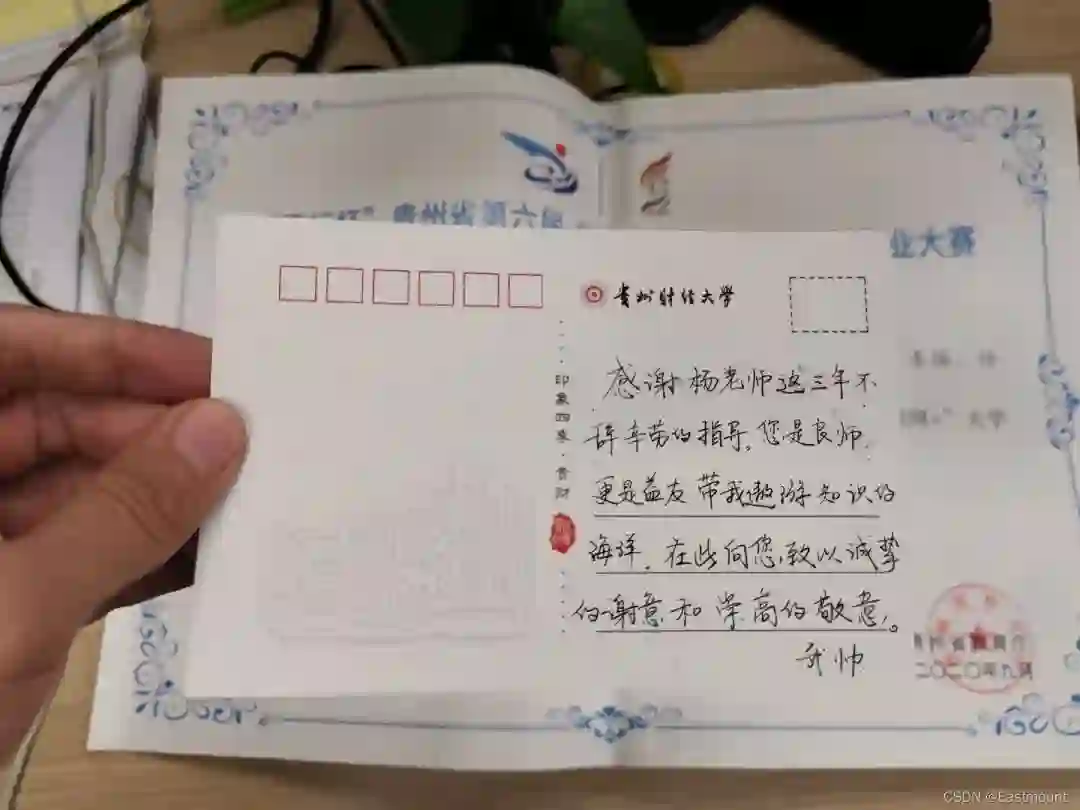 贵州省第六届
业大赛
贵州财经大学
印象四季·贵财
感谢杨老师这三年不
辞辛劳的指导,您是良师,
更是益友带我遨游知识的
海洋,在此向您,致以诚挚
的谢意和学高的敬意,。
武帅
大学
二〇二〇年九月
CSDN @Eastmount